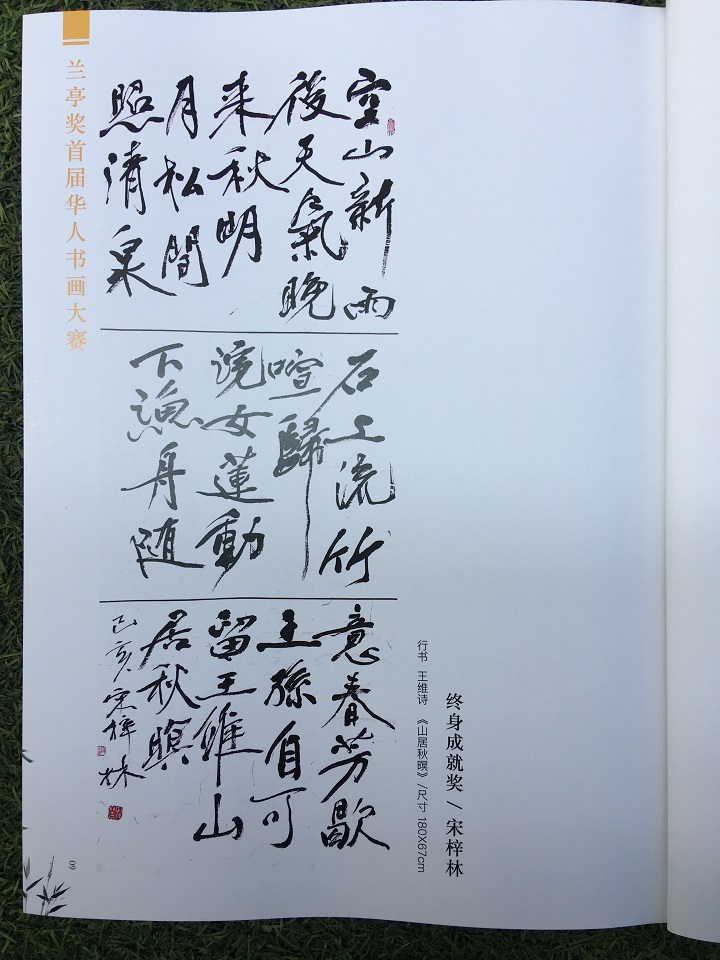 兰亭奖首届华人书画大赛
空山新雨
後天氣晚
来秋明
月松間
照清泉
石上流竹
喧歸
浣女蓮動
下漁舟随
意春芳歇
王孫自可
留王維山
居秋暝
己亥宋梓林
终身成就奖 / 宋梓林
行书 王维诗 《山居秋暝》/尺寸 180X67cm
09